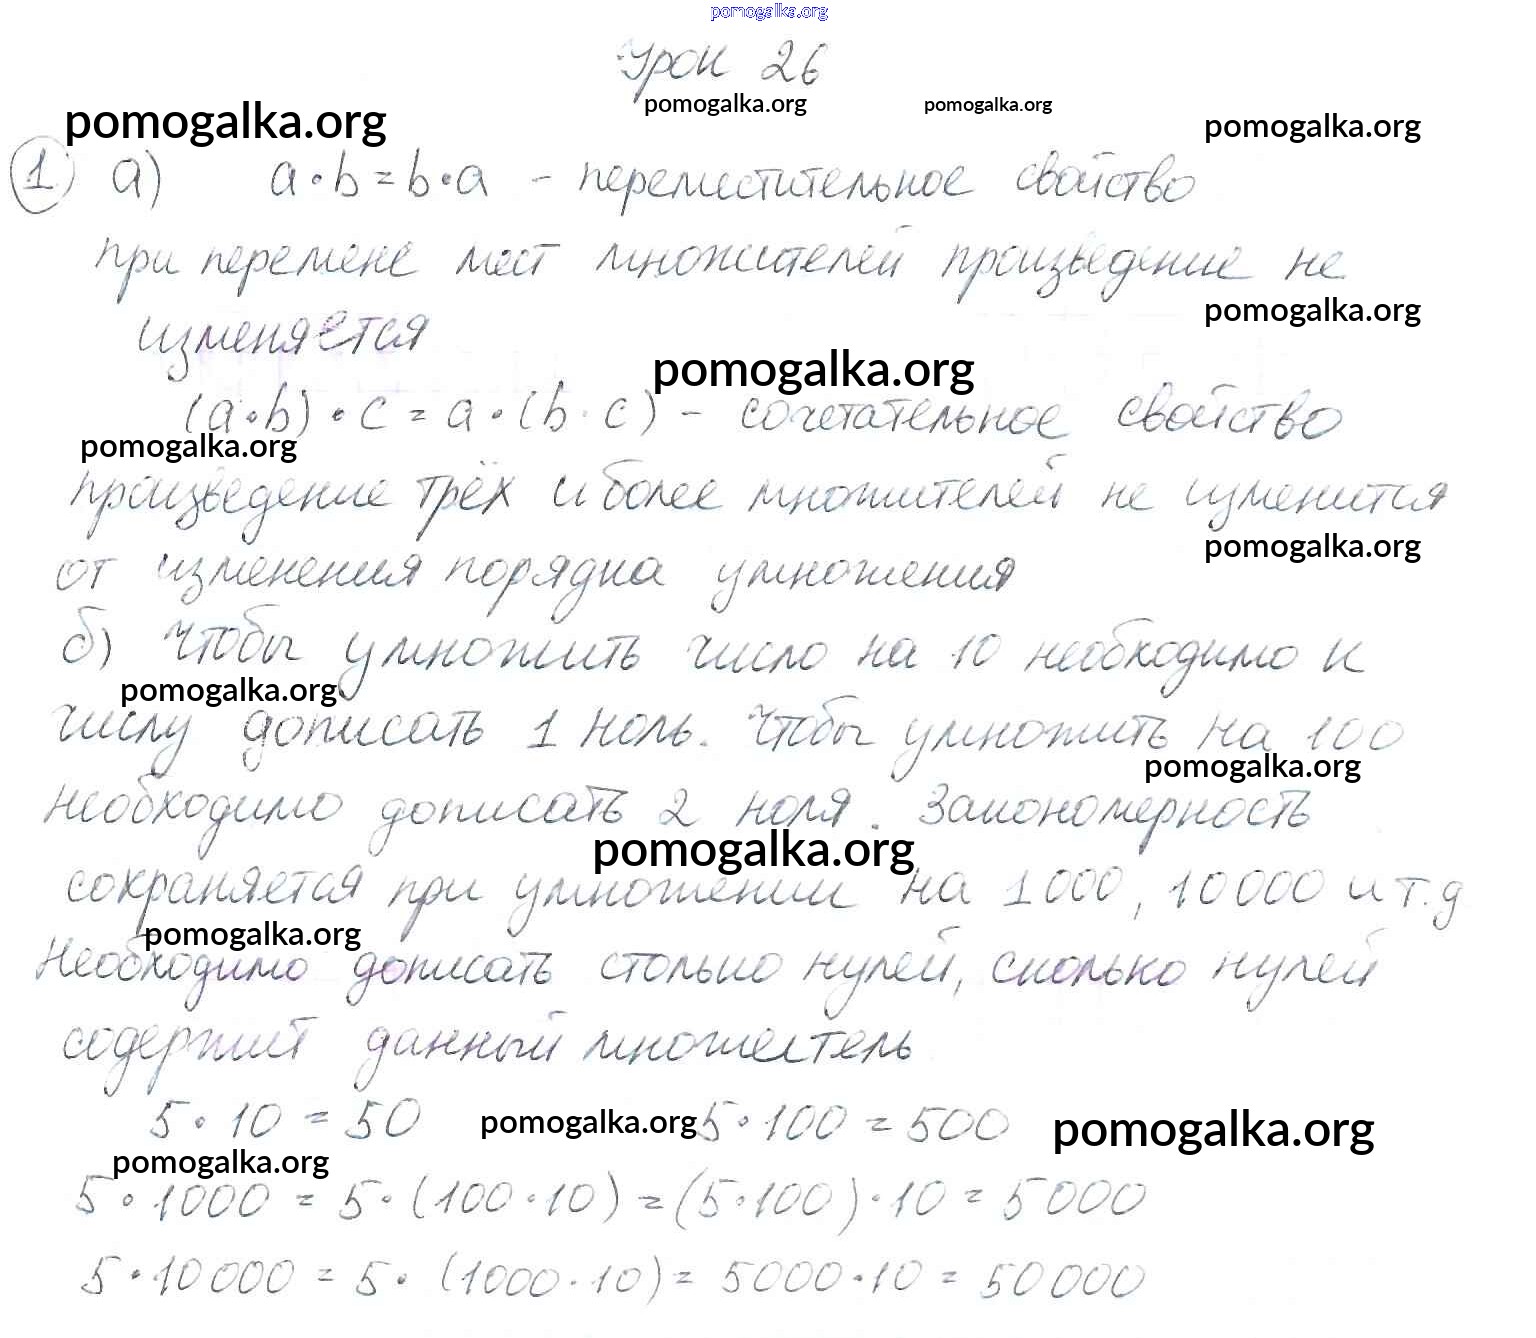 pomogalka.org
Урок 26
pomogalka.org pomogalka.org
pomogalka.org pomogalka.org
1 а) a·b=b·a - переместительное свойство
при перемене мест множителей произведение не
pomogalka.org
изменяется
pomogalka.org
(a·b)·c=a·(b·c) - сочетательное свойство
pomogalka.org
произведение трёх и более множителей не изменится
pomogalka.org
от изменения порядка умножения
б) Чтобы умножить число на 10 необходимо к
pomogalka.org
числу дописать 1 ноль. Чтобы умножить на 100
pomogalka.org
необходимо дописать 2 ноля. Закономерность
pomogalka.org
сохраняется при умножении на 1000, 10000 и т.д
pomogalka.org
Необходимо дописать столько нулей, сколько нулей
содержит данный множитель
5·10=50 pomogalka.org 5·100=500 pomogalka.org
pomogalka.org
5·1000=5·(100·10)=(5·100)·10=5000
5·10000=5·(1000·10)=5000·10=50000